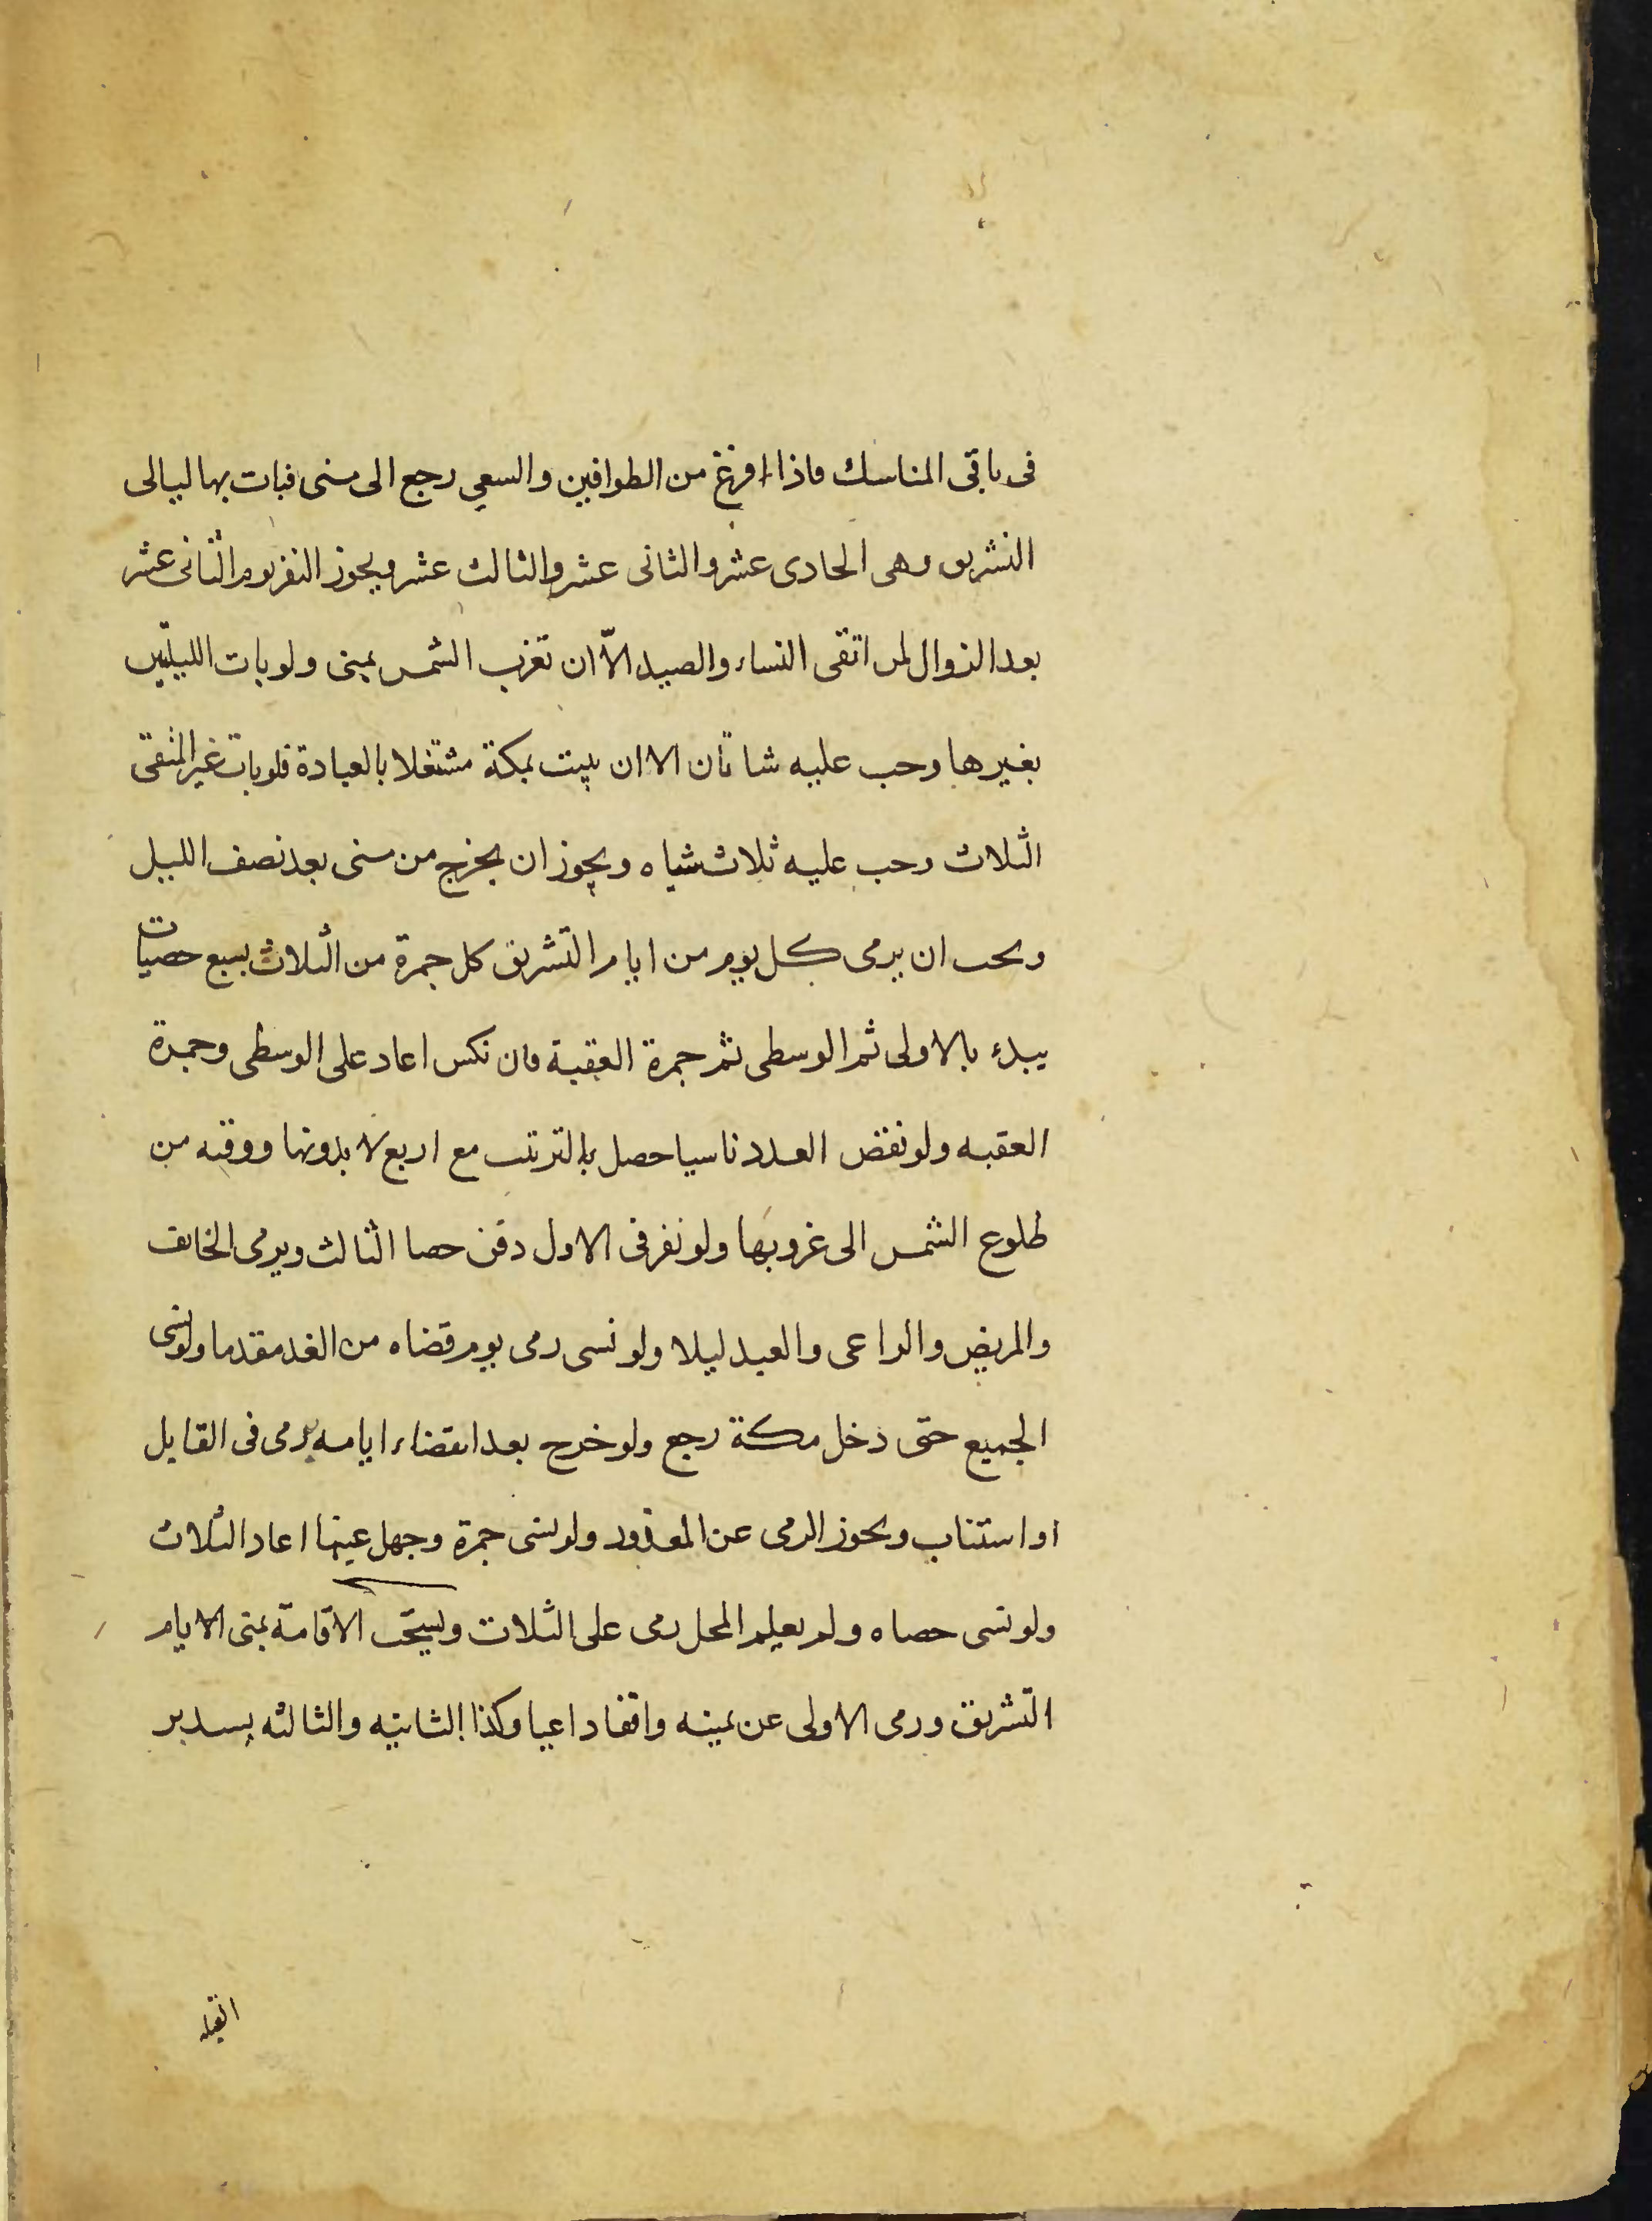 فى باقى المناسك فاذا افرغ من الطوافين والسعي رجع الى منى فبات بها ليالى
التشريق وهى الحادى عشر والثانى عشر والثالث عشر ويجوز النفر يوم الثانى عشر
بعد الزوال لمن اتقى النساء والصيد الّا ان تغرب الشمس بمنى ولو بات الليلتين
بغيرها وجب عليه شاتان الا ان يبيت بمكة مشتغلا بالعبادة فلو بات غير المتقى
الثلاث وجب عليه ثلاث شياه ويجوز ان يخرج من منى بعد نصف الليل
ويجب ان يرمى كل يوم من ايام التشريق كل جمرة من الثلاث بسبع حصيات
يبدء بالاولى ثم الوسطى ثم جمرة العقبة فان نكس اعاد على الوسطى وجمرة
العقبه ولو نقض العدد ناسيا حصل بالترتيب مع اربع لا بدونها ووقته من
طلوع الشمس الى غروبها ولو نفر فى الاول دفن حصا الثالث ويرمى الخائف
والمريض والراعى والعبد ليلا ولو نسى رمى يوم قضاه من الغد مقدما ولو نسى
الجميع حتى دخل مكة رجع ولو خرج بعد انقضاء ايامه يرمى فى القابل
او استناب ويجوز الرمى عن المعذور ولو نسى جمرة وجهل عينها اعاد الثلاث
ولو نسى حصاه ولم يعلم المحل رمى على الثلاث ويستحب الاقامة بمنى الايام
التشريق ورمى الاولى عن يمينه واقفا داعيا وكذا الثانيه والثالثه يستدبر
القبله